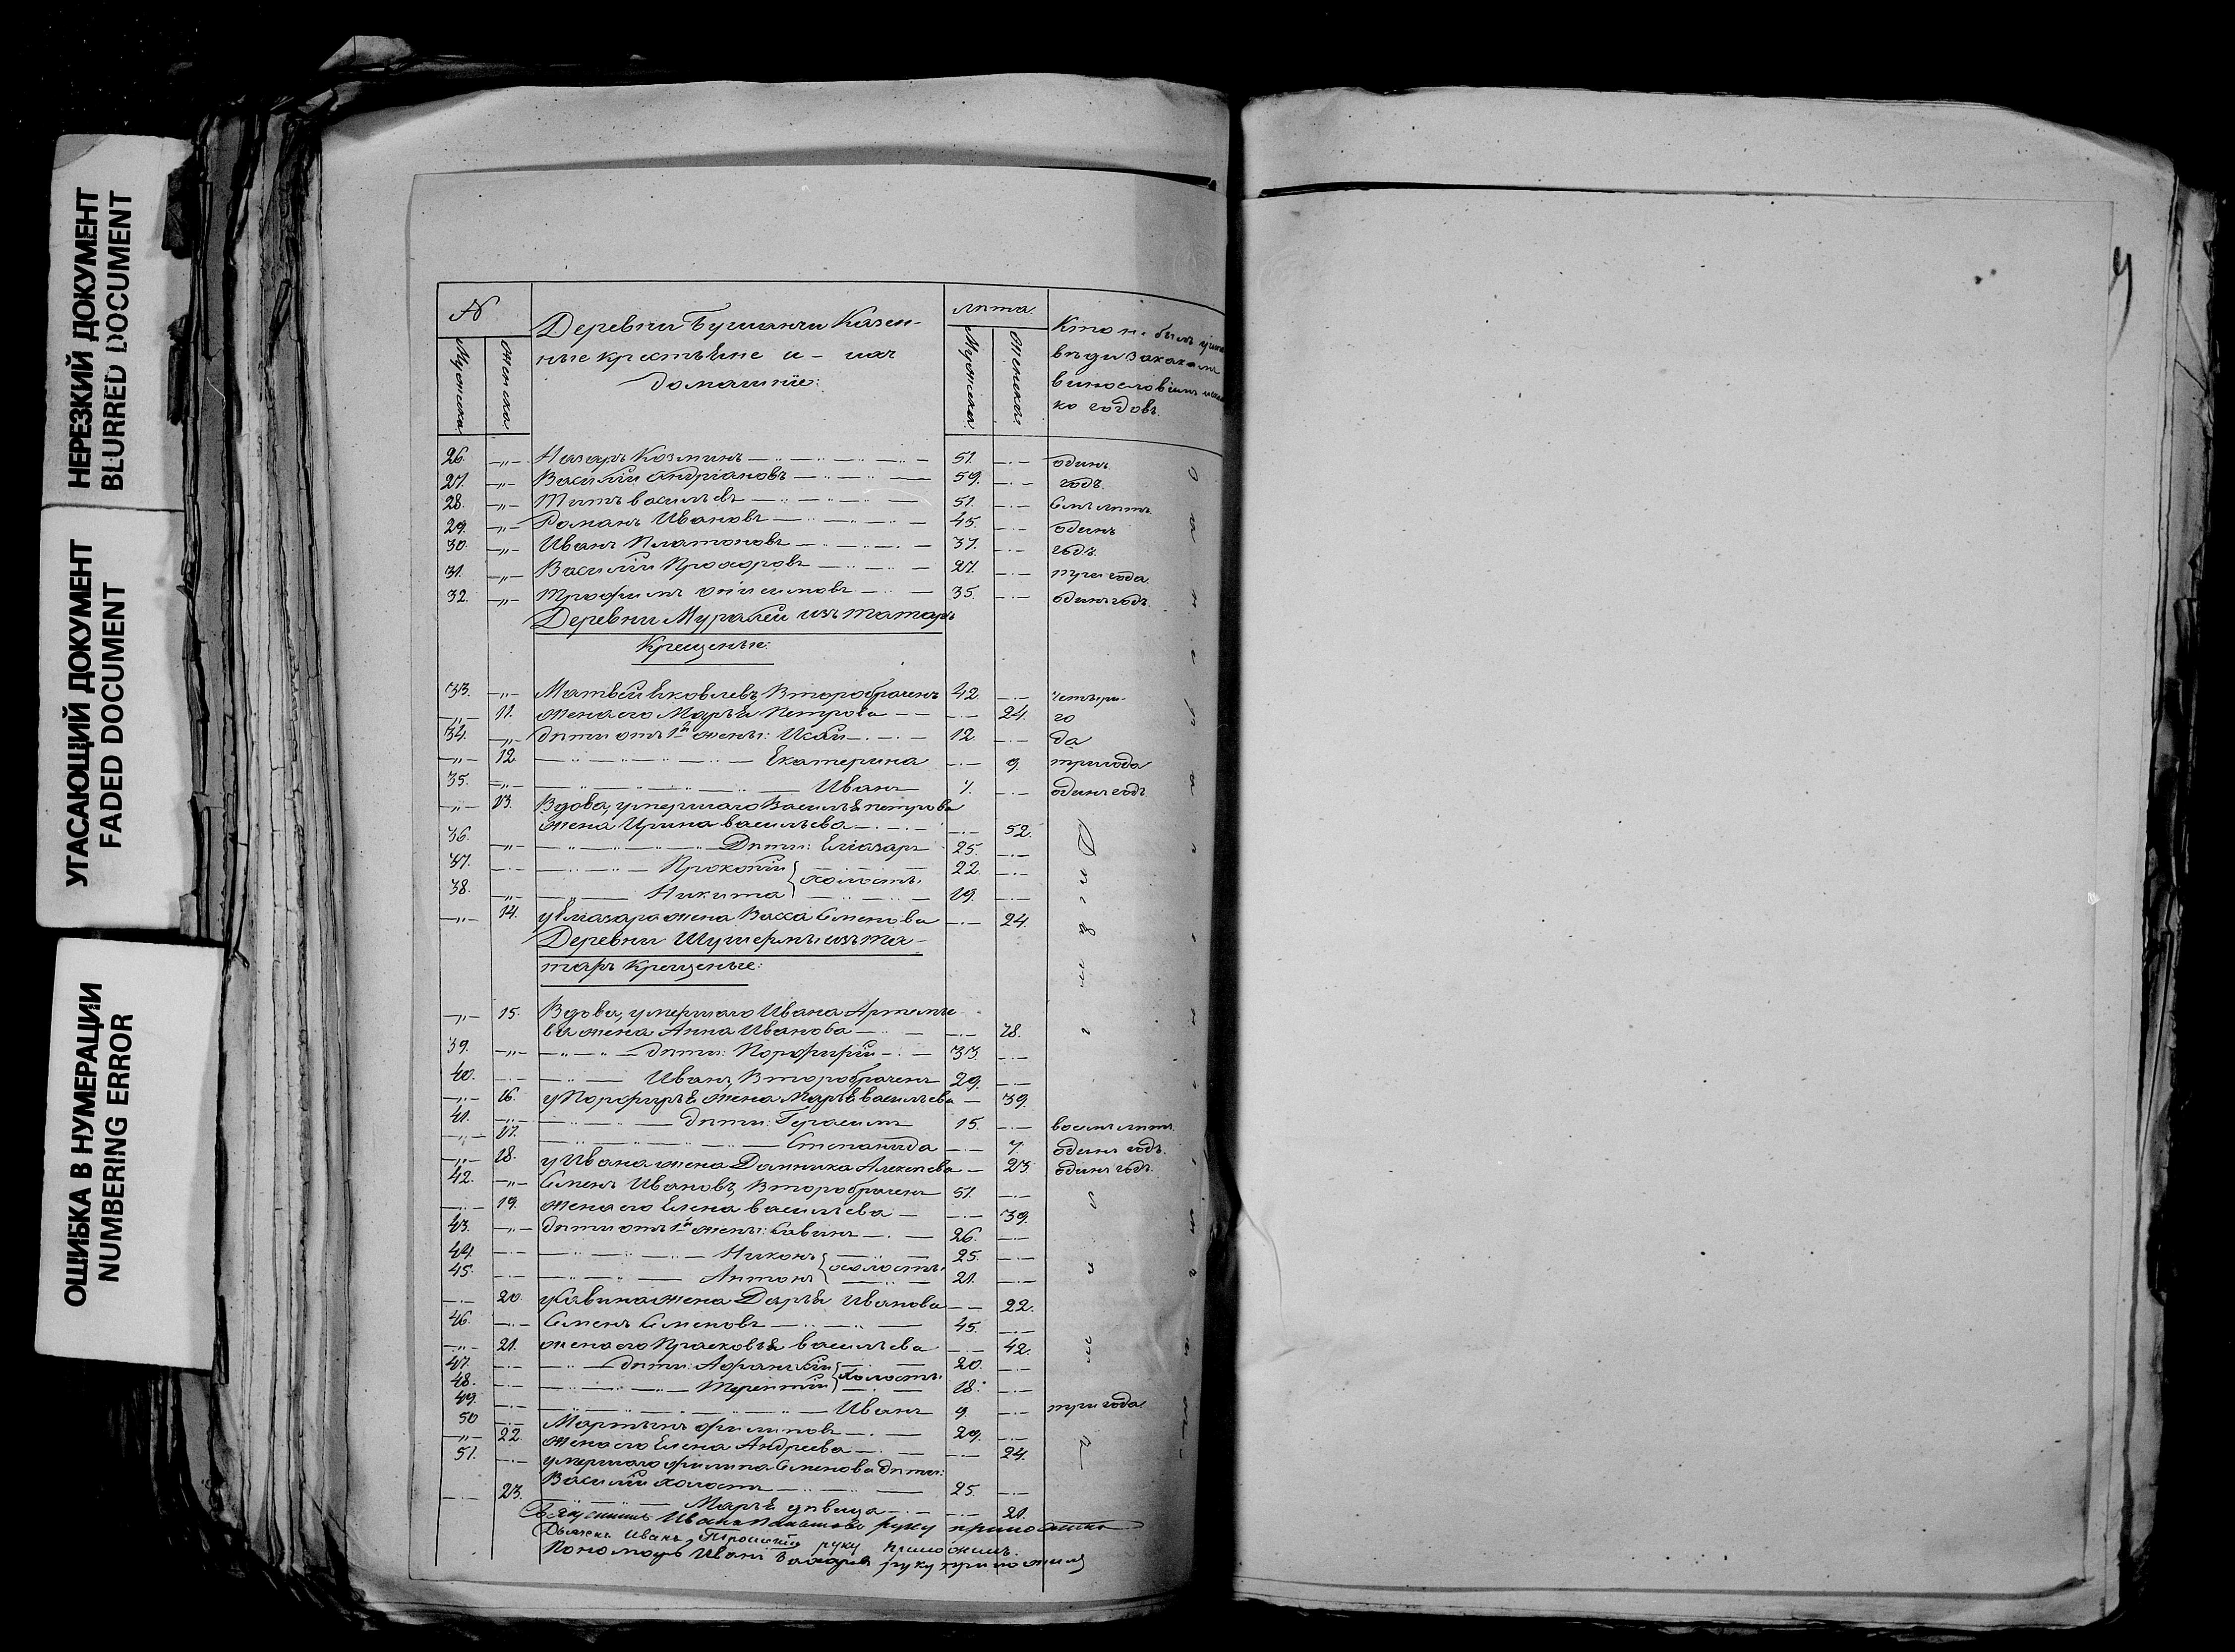 НЕРЕЗКИЙ ДОКУМЕНТ
BLURRED DOCUMENT
УГАСАЮЩИЙ ДОКУМЕНТ
FADED DOCUMENT
ОШИБКА В НУМЕРАЦИИ
NUMBERING ERROR
№ Деревни Казен- лѣта
ные крестьѣне и их
домашнiе:
Мужска Женска Мужска Женска
ко годовъ.
26. Назаръ Козминъ 51. одинъ
27. Василiй Андрiановъ 59. годъ.
28. Титъ васильевъ 51.
29. Романъ Ивановъ 45. одинъ
30. Иванъ Платоновъ 37. годъ.
31. Василiй Прохоровъ 27. три года
32. Трофимъ 35. одинъ годъ.
Деревни изъ татаръ
Крещеные:
33. Матвей Яковлевъ, второбраченъ 42 четыри-
11. жена его Марьѣ Петрова 24. го
34. дѣти отъ 1й жены: Исай 12. да
12. Екатерина 9. три года
35. Иванъ 7. одинъ годъ
13. Вдова, умершаго Васильѣ петрова
жена Ирина васильева 52.
36. Дѣти: Елiазаръ 25.
37. Прокопiй 22. холосты
38. Никита 19.
14. у Елiазара жена Васса Семенова 24.
Деревни изъ та-
таръ Крещеные:
15. Вдова, умершаго Ивана Артемье
ва жена Анна Иванова 78.
39. дѣти: Порфирiй 33.
40. Иванъ, Второбраченъ 29.
16. у Порфирьѣ жена Марьѣ васильева 39.
41. дѣти: Герасимъ 15. восемь лѣтъ
17. Степанида 7. одинъ годъ.
18. у Ивана жена Домника Алексѣева 23 одинъ годъ
42. Семенъ Ивановъ, Второбраченъ 51.
19. жена его Елена васильева 39.
43. дѣти отъ 1й жены: Савинъ 26.
44. Никонъ 25. холосты
45. Антонъ 21.
20. у Савина жена Дарьѣ Иванова 22.
46. Семенъ Семеновъ 45.
21. жена его Прасковьѣ васильева 42.
47. дѣти: Афанасiй 20. холосты
48. Терентiй 18.
49. Иванъ 9. три года
50 Мартынъ филиповъ 29.
22. жена его Елена Андреева 24.
51. умершаго филипа Семенова дѣти:
Василiй холостъ 25.
23. Марьѣ дѣвица 21.
Иванъ руку приложилъ
Дьячекъ Иванъ руку приложилъ.
Пономарь Иванъ Захаровъ руку приложилъ